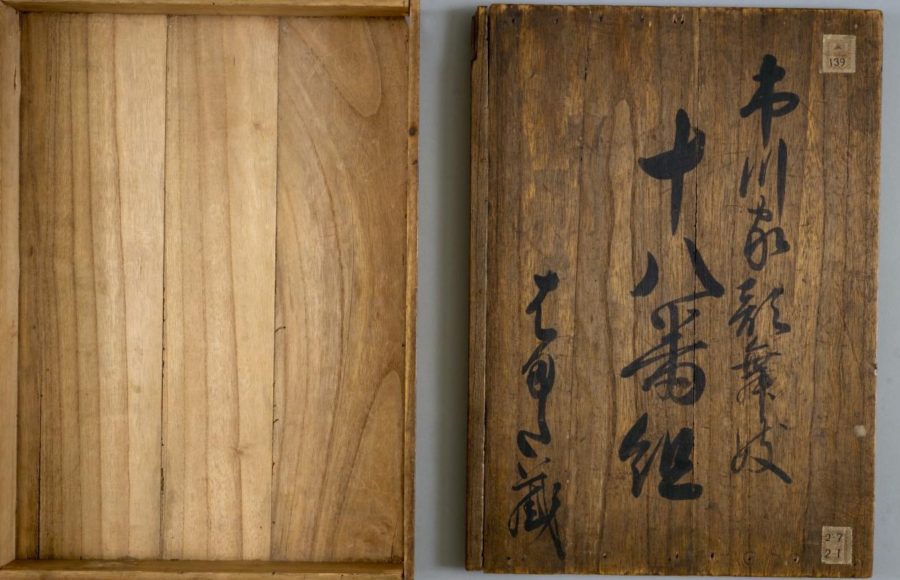 市川家歌舞妓
十八番組
蔵
139
2-7
2-1